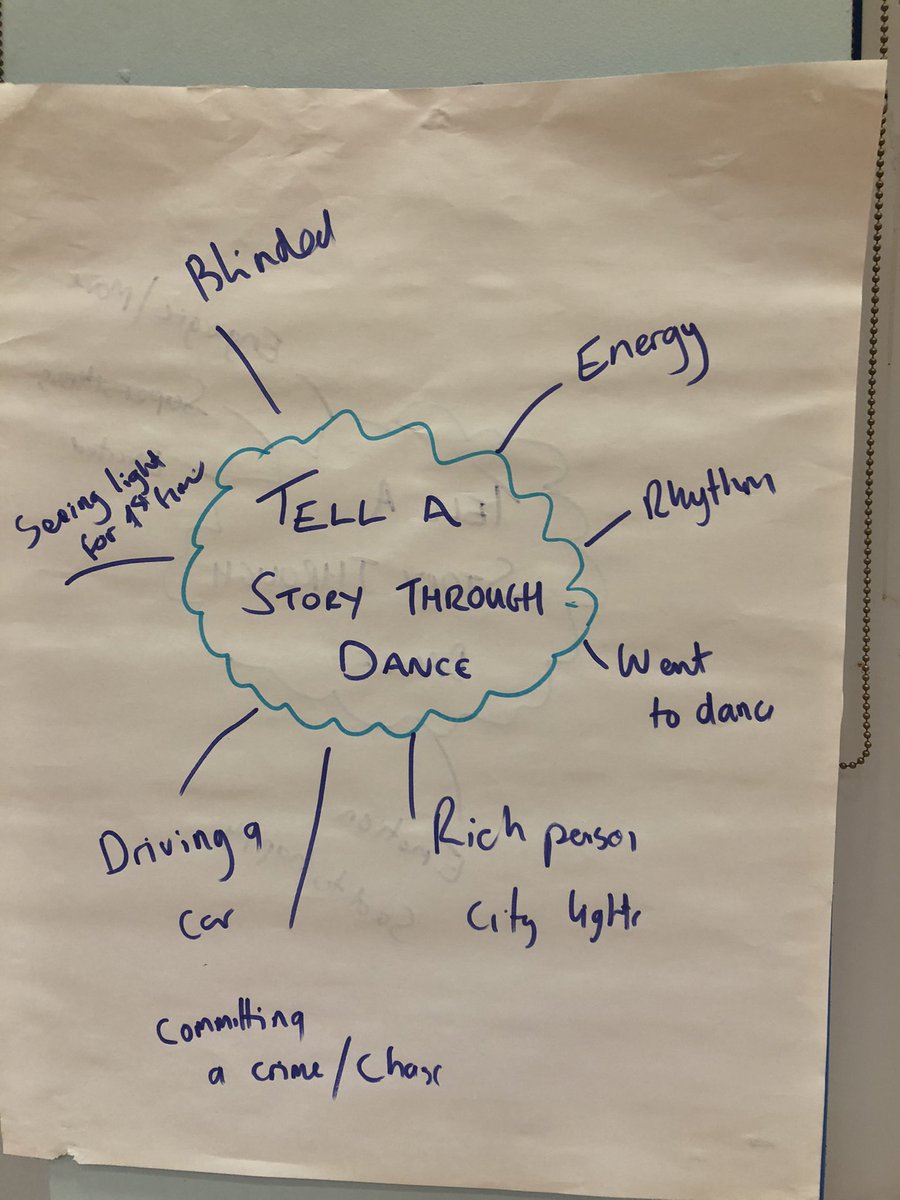 Blinded
Energy
Rhythm
Want
to dance
Rich person
City lights
Committing
a crime/Chase
Driving a
car
Seeing light
for 1st time
TELL A
STORY THROUGH
DANCE